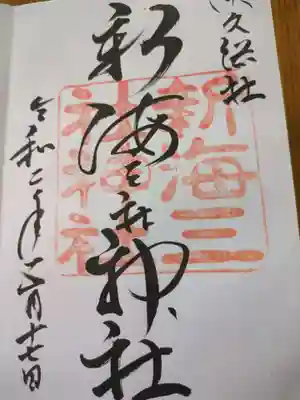 久総社
新海三社神社
新海三
社神社
令和二年 月十七日